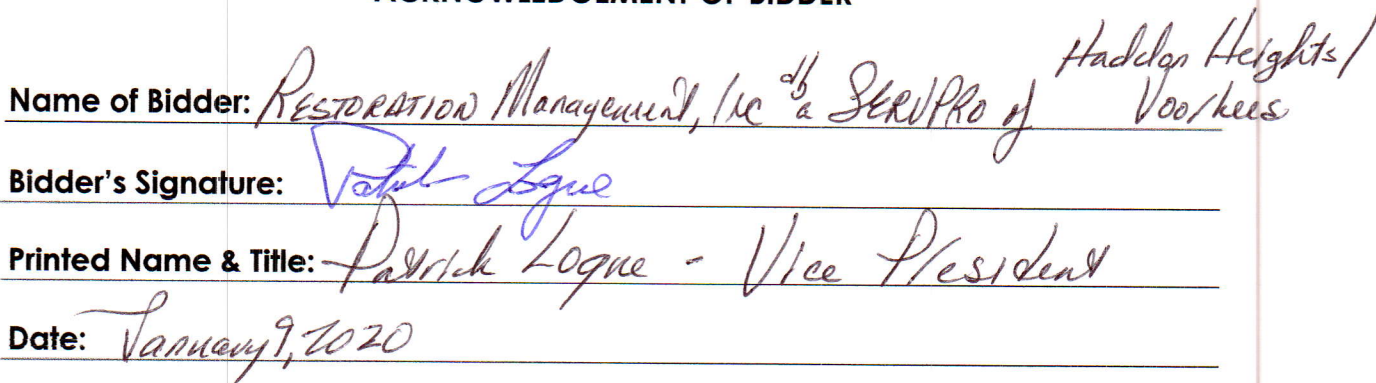 ACKNOWLEDGEMENT OF BIDDER
Name of Bidder: RESTORATION Management, Inc dba SERVPRO of Haddon Heights/
Voorhees
Bidder's Signature: Patrick Logue
Printed Name & Title: Patrick Logue - Vice President
Date: January 9, 2020